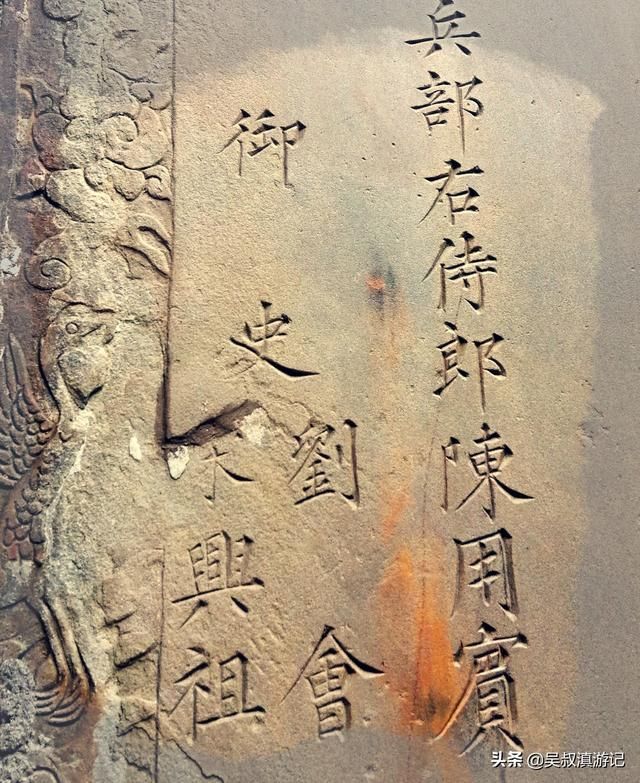 兵部右侍郎陳用賓
御史
劉會
宋興祖
头条 @吴叔滇游记